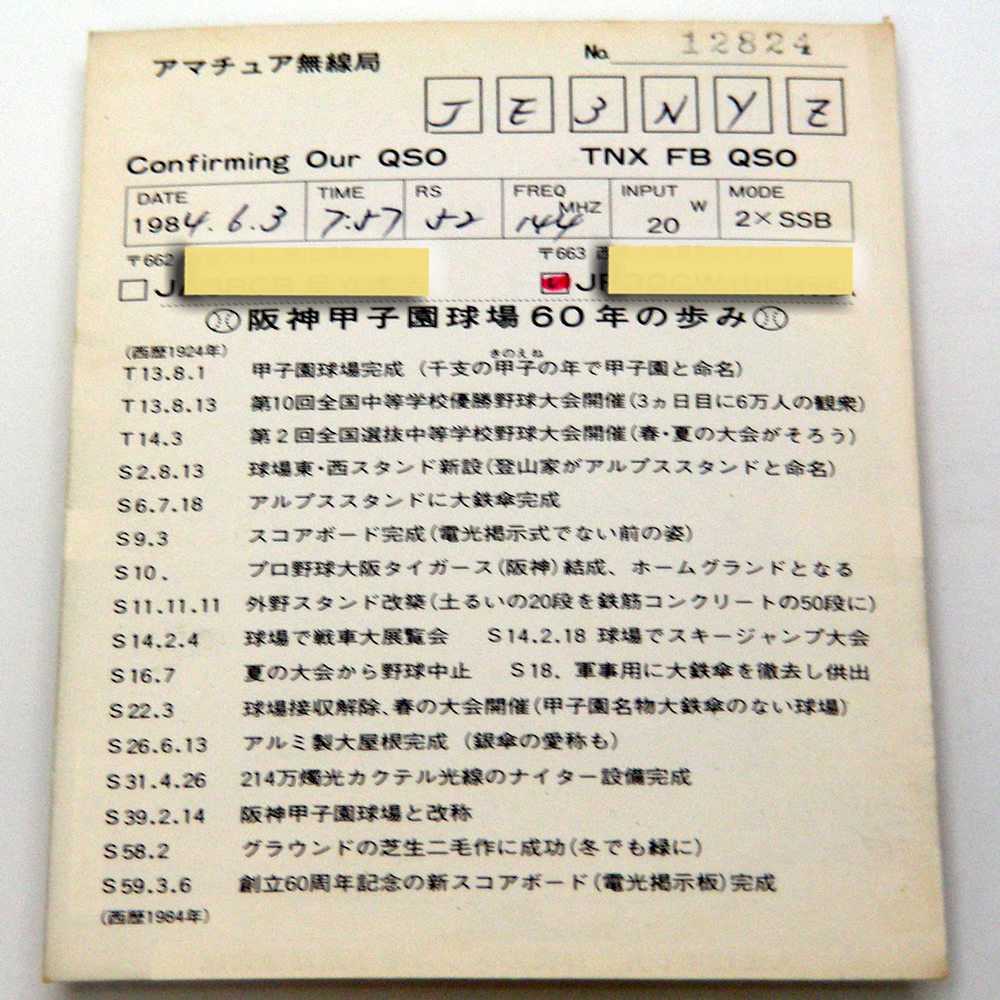 アマチュア無線局
No. 12824
J E 3 N Y Z
Confirming Our QSO TNX FB QSO
DATE TIME RS FREQ MHZ INPUT W MODE
1984.6.3 7:57 52 144 20 2×SSB
〒662 〒663
(西歴1924年)
阪神甲子園球場60年の歩み
きのえね
T13.8.1 甲子園球場完成 (千支の甲子の年で甲子園と命名)
T13.8.13 第10回全国中等学校優勝野球大会開催(3ヵ日目に6万人の観衆)
T14.3 第2回全国選抜中等学校野球大会開催(春・夏の大会がそろう)
S2.8.13 球場東・西スタンド新設(登山家がアルプススタンドと命名)
S6.7.18 アルプススタンドに大鉄傘完成
S9.3 スコアボード完成(電光掲示式でない前の姿)
S10. プロ野球大阪タイガース(阪神)結成、ホームグランドとなる
S11.11.11 外野スタンド改築(土るいの20段を鉄筋コンクリートの50段に)
S14.2.4 球場で戦車大展覧会 S14.2.18 球場でスキージャンプ大会
S16.7 夏の大会から野球中止 S18. 軍事用に大鉄傘を徹去し供出
S22.3 球場接収解除、春の大会開催(甲子園名物大鉄傘のない球場)
S26.6.13 アルミ製大屋根完成 (銀傘の愛称も)
S31.4.26 214万燭光カクテル光線のナイター設備完成
S39.2.14 阪神甲子園球場と改称
S58.2 グラウンドの芝生二毛作に成功(冬でも緑に)
S59.3.6 創立60周年記念の新スコアボード(電光掲示板)完成
(西歴1984年)